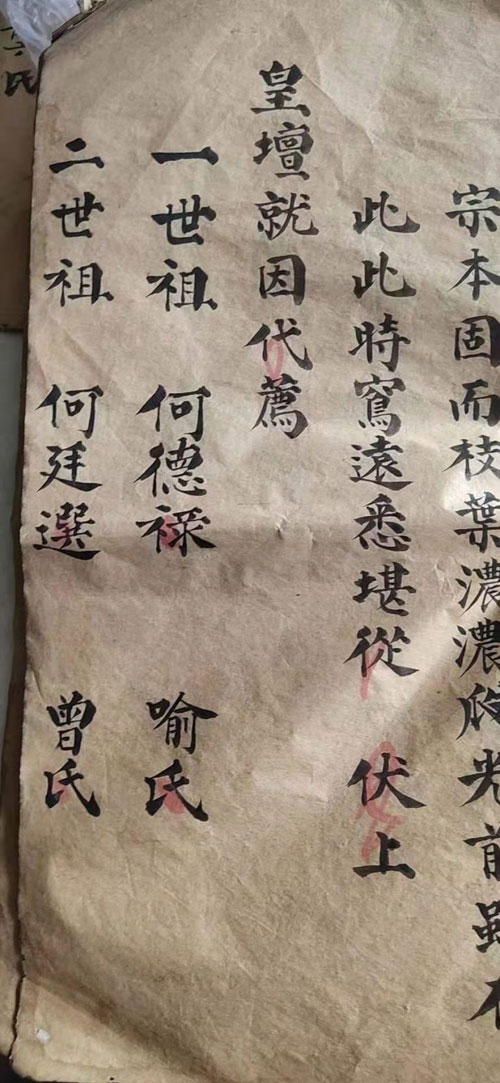 宗本固而枝葉濃濃庇光前雖不
此此時寫遠悉堪從 伏上
皇壇就因代薦
一世祖 何德祿 喻氏
二世祖 何廷選 曾氏
氏